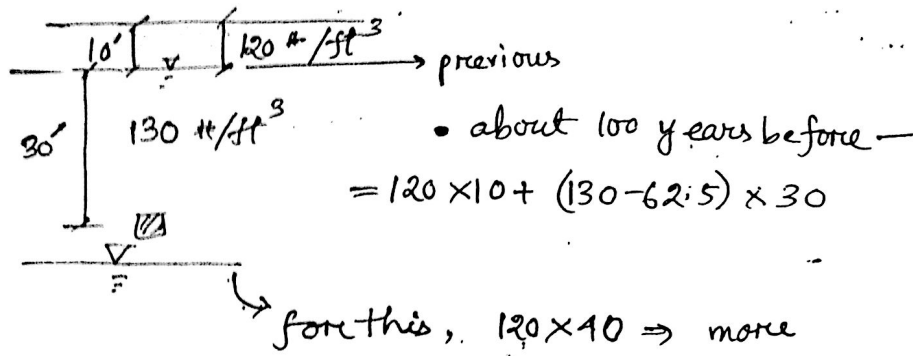 10' 120 #/ft³
→ previous
30' 130 #/ft³
• about 100 years before —
= 120 × 10 + (130-62.5) × 30
for this, 120×40 ⇒ more